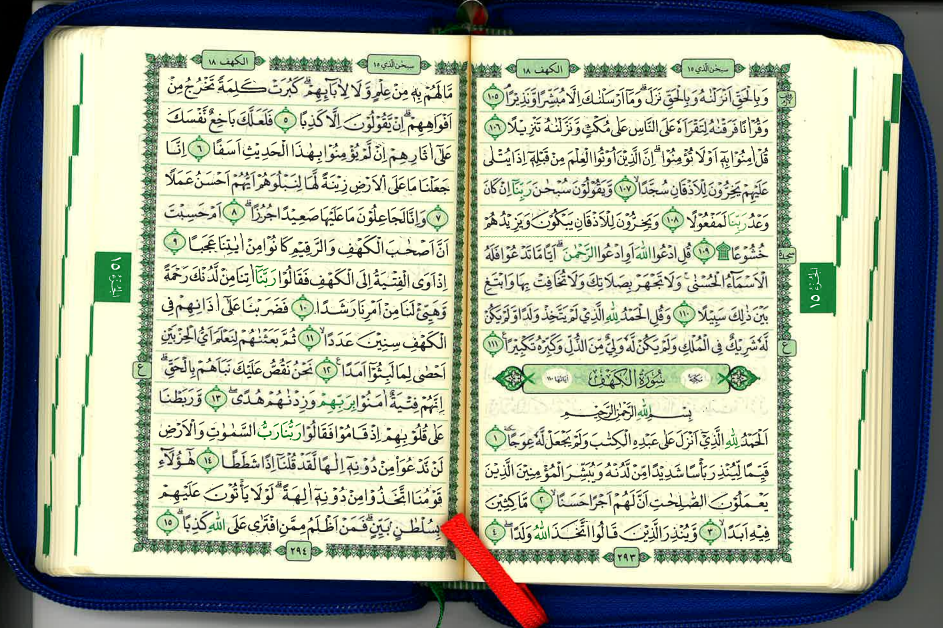 سبحن الذي ١٥
الكهف ١٨
وَبِالْحَقِّ اَنْزَلْنٰهُ وَبِالْحَقِّ نَزَلَ ۗ وَمَآ اَرْسَلْنٰكَ اِلَّا مُبَشِّرًا وَّنَذِيْرًا ۘ ١٠٥
وَقُرْاٰنًا فَرَقْنٰهُ لِتَقْرَاَهٗ عَلَى النَّاسِ عَلٰى مُكْثٍ وَّنَزَّلْنٰهُ تَنْزِيْلًا ١٠٦
قُلْ اٰمِنُوْا بِهٖٓ اَوْ لَا تُؤْمِنُوْا ۗ اِنَّ الَّذِيْنَ اُوْتُوا الْعِلْمَ مِنْ قَبْلِهٖٓ اِذَا يُتْلٰى
عَلَيْهِمْ يَخِرُّوْنَ لِلْاَذْقَانِ سُجَّدًا ۙ ١٠٧ وَّيَقُوْلُوْنَ سُبْحٰنَ رَبِّنَآ اِنْ كَانَ
وَعْدُ رَبِّنَا لَمَفْعُوْلًا ١٠٨ وَيَخِرُّوْنَ لِلْاَذْقَانِ يَبْكُوْنَ وَيَزِيْدُهُمْ
خُشُوْعًا ۩ ١٠٩ قُلِ ادْعُوا اللّٰهَ اَوِ ادْعُوا الرَّحْمٰنَ ۗ اَيًّا مَّا تَدْعُوْا فَلَهُ
الْاَسْمَاۤءُ الْحُسْنٰى ۚ وَلَا تَجْهَرْ بِصَلَاتِكَ وَلَا تُخَافِتْ بِهَا وَابْتَغِ
بَيْنَ ذٰلِكَ سَبِيْلًا ١١٠ وَقُلِ الْحَمْدُ لِلّٰهِ الَّذِيْ لَمْ يَتَّخِذْ وَلَدًا وَّلَمْ يَكُنْ
لَّهٗ شَرِيْكٌ فِى الْمُلْكِ وَلَمْ يَكُنْ لَّهٗ وَلِيٌّ مِّنَ الذُّلِّ وَكَبِّرْهُ تَكْبِيْرًا ١١١
سُوْرَةُ الْكَهْفِ
بِسْمِ اللّٰهِ الرَّحْمٰنِ الرَّحِيْمِ
اَلْحَمْدُ لِلّٰهِ الَّذِيْٓ اَنْزَلَ عَلٰى عَبْدِهِ الْكِتٰبَ وَلَمْ يَجْعَلْ لَّهٗ عِوَجًا ۜ ١
قَيِّمًا لِّيُنْذِرَ بَأْسًا شَدِيْدًا مِّنْ لَّدُنْهُ وَيُبَشِّرَ الْمُؤْمِنِيْنَ الَّذِيْنَ
يَعْمَلُوْنَ الصّٰلِحٰتِ اَنَّ لَهُمْ اَجْرًا حَسَنًا ۙ ٢ مَّاكِثِيْنَ
فِيْهِ اَبَدًا ۙ ٣ وَّيُنْذِرَ الَّذِيْنَ قَالُوا اتَّخَذَ اللّٰهُ وَلَدًا ۖ ٤
٢٩٣
سجدة
ع
الجزء ١٥
سبحن الذي ١٥
الكهف ١٨
مَا لَهُمْ بِهٖ مِنْ عِلْمٍ وَّلَا لِاٰبَاۤىِٕهِمْ ۗ كَبُرَتْ كَلِمَةً تَخْرُجُ مِنْ
اَفْوَاهِهِمْ ۗ اِنْ يَّقُوْلُوْنَ اِلَّا كَذِبًا ٥ فَلَعَلَّكَ بَاخِعٌ نَّفْسَكَ
عَلٰٓى اٰثَارِهِمْ اِنْ لَّمْ يُؤْمِنُوْا بِهٰذَا الْحَدِيْثِ اَسَفًا ٦ اِنَّا
جَعَلْنَا مَا عَلَى الْاَرْضِ زِيْنَةً لَّهَا لِنَبْلُوَهُمْ اَيُّهُمْ اَحْسَنُ عَمَلًا
٧ وَاِنَّا لَجَاعِلُوْنَ مَا عَلَيْهَا صَعِيْدًا جُرُزًا ۗ ٨ اَمْ حَسِبْتَ
اَنَّ اَصْحٰبَ الْكَهْفِ وَالرَّقِيْمِ كَانُوْا مِنْ اٰيٰتِنَا عَجَبًا ٩
اِذْ اَوَى الْفِتْيَةُ اِلَى الْكَهْفِ فَقَالُوْا رَبَّنَآ اٰتِنَا مِنْ لَّدُنْكَ رَحْمَةً
وَّهَيِّئْ لَنَا مِنْ اَمْرِنَا رَشَدًا ١٠ فَضَرَبْنَا عَلٰٓى اٰذَانِهِمْ فِى
الْكَهْفِ سِنِيْنَ عَدَدًا ۙ ١١ ثُمَّ بَعَثْنٰهُمْ لِنَعْلَمَ اَيُّ الْحِزْبَيْنِ
اَحْصٰى لِمَا لَبِثُوْٓا اَمَدًا ۚ ١٢ نَحْنُ نَقُصُّ عَلَيْكَ نَبَاَهُمْ بِالْحَقِّ ۗ
اِنَّهُمْ فِتْيَةٌ اٰمَنُوْا بِرَبِّهِمْ وَزِدْنٰهُمْ هُدًى ۖ ١٣ وَّرَبَطْنَا
عَلٰى قُلُوْبِهِمْ اِذْ قَامُوْا فَقَالُوْا رَبُّنَا رَبُّ السَّمٰوٰتِ وَالْاَرْضِ
لَنْ نَّدْعُوَا۟ مِنْ دُوْنِهٖٓ اِلٰهًا لَّقَدْ قُلْنَآ اِذًا شَطَطًا ١٤ هٰٓؤُلَاۤءِ
قَوْمُنَا اتَّخَذُوْا مِنْ دُوْنِهٖٓ اٰلِهَةً ۗ لَوْلَا يَأْتُوْنَ عَلَيْهِمْ
بِسُلْطٰنٍ بَيِّنٍ ۗ فَمَنْ اَظْلَمُ مِمَّنِ افْتَرٰى عَلَى اللّٰهِ كَذِبًا ۗ ١٥
٢٩٤
ع
١٥